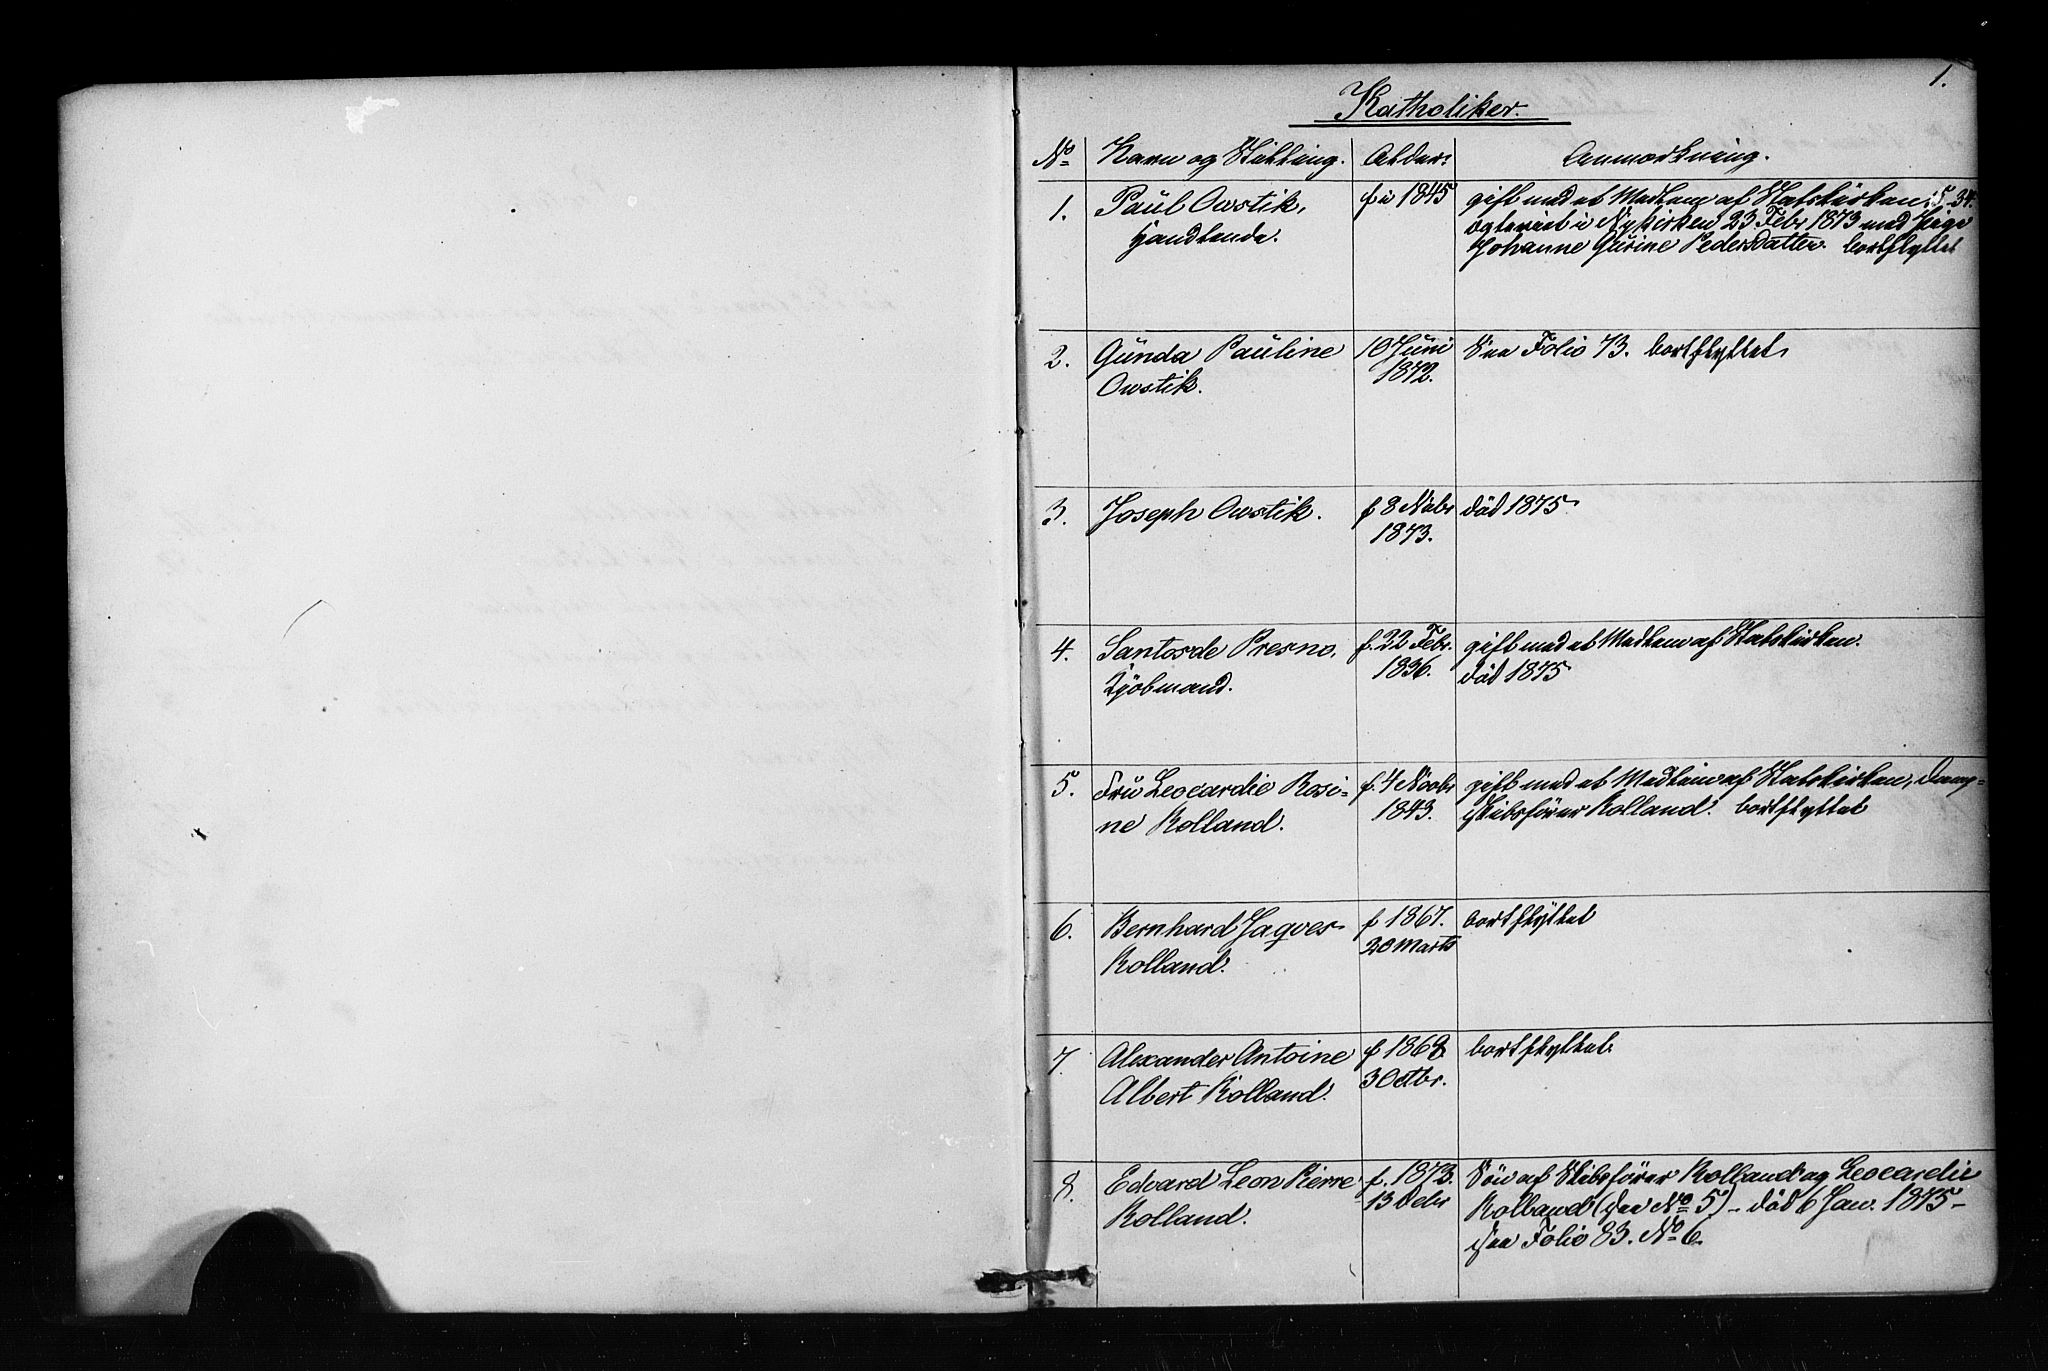 1.
Katholiker.
No Navn og Stilling. Alder. Anmærkning.
1. Paul Owstik, f i 1845 gift med et Medlem af Statskirken; S. 34.
Handlende. egteviet i Nykirken 23 Febr 1873 med Pige
Johanne Gurine Pedersdatter. bortflyttet
2. Gunda Pauline 10 Juni See Folio 73. bortflyttet.
Owstik. 1872.
3. Joseph Owstik. f 8 Novbr död 1875
1873.
4. Santos de Presno, f. 22 Febr. gift med et Medlem af Statskirken.
Kjöbmand. 1836. död 1875
5. Fru Leocardie Rosi- f. 4 Novbr gift med et Medlem af Statskirken, Damp-
ne Rolland. 1843. skibsförer Rolland. bortflyttet
6. Bernhard Jaques f 1867. bortflyttet
Rolland. 20 Marts
7. Alexander Antoine f 1869 bortflyttet.
Albert Rolland. 3 Octbr.
8. Edvard Leon Pierre f. 1873. Sön af Skibsförer Rolland og Leocardie
Rolland. 13 Debr Rolland (see No 5) – död 6 Jan. 1875 –
see Folio 83. No 6.